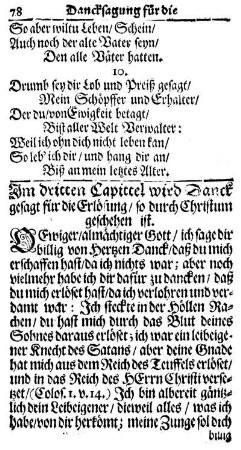 78 Dancksagung für die
So aber wiltu Leben/ Schein/
Auch noch der alte Vater seyn/
Den alle Väter hatten.
10.
Drumb sey dir Lob und Preiß gesagt/
Mein Schöpffer und Erhalter/
Der du/ von Ewigkeit betagt/
Bist aller Welt Verwalter:
Weil ich ohn dich nicht leben kan/
So leb' ich dir/ und hang dir an/
Biß an mein letztes Alter.
Im dritten Capittel wird Danck
gesagt für die Erlösung/ so durch Christum
geschehen ist.
O Ewiger/ allmächtiger Gott/ ich sage dir
billig von Hertzen Danck/ daß du mich
erschaffen hast/ da ich nichts war; aber noch
vielmehr habe ich dir dafür zu dancken/ daß
du mich erlöset hast/ da ich verlohren und ver-
damt war: Ich steckte in der Höllen Ra-
chen/ du hast mich durch das Blut deines
Sohnes daraus erlöset; ich war ein leibeige-
ner Knecht des Satans/ aber deine Gnade
hat mich aus dem Reich des Teuffels erlöset/
und in das Reich des HErrn Christi verse-
tzet/ (Colos. 1. v. 14.) Ich bin albereit gäntz-
lich dein Leibeigener/ dieweil alles/ was ich
habe/ von dir herkömt; meine Zunge sol dich
billig